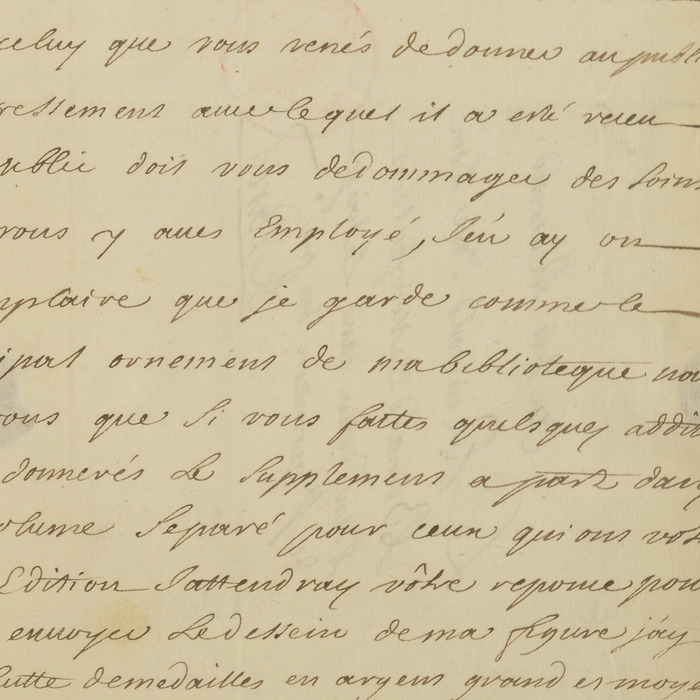 celuy que vous venés dedonner aupubl
ressement avec lequel il a esté receu
ublic doit vous dédommager des soin
vous y aves Employé, J'en ay un
mplaire que je garde comme le
ipal ornement de mabiblioteque
vous que si vous faites quelques addit
donnerés Le Supplement a part dan
olume Separé pour ceux qui ont vot
Edition Jattendray vôtre reponse pou
envoyer Ledessein dema figure j'ay
demedailles en argent grand et moy